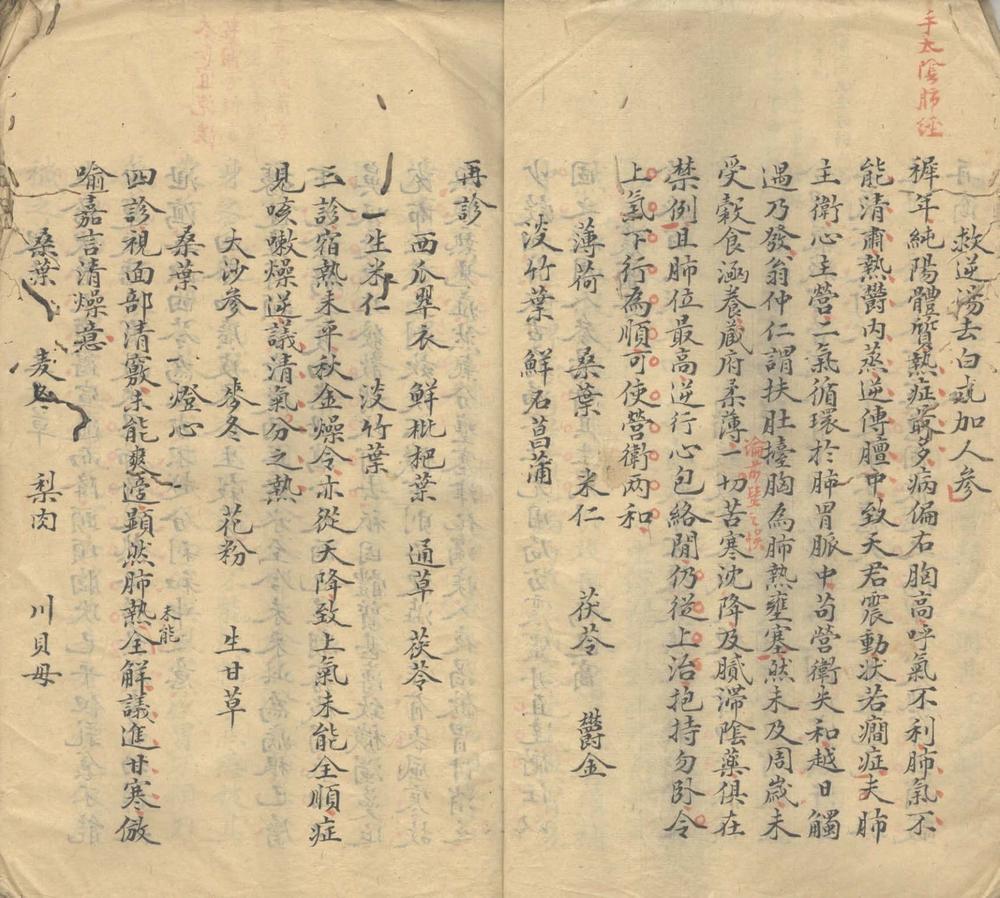 手太陰肺經
救逆湯去白或加人參
穉年純陽體質熱症最多病偏右胸高呼氣不利肺氣不
能清肅熱欝內蒸逆傳膻中致天君震動狀若癎症夫肺
主衛心主營二氣循環於肺胃脈中苟營衛失和越日觸
遇乃發翁仲仁謂扶肚擡胸為肺熱壅塞然未及周歲未
受穀食涵養藏府柔薄一切苦寒沈降及膩滯陰藥俱在
禁例且肺位最高逆行心包絡間仍從上治抱持勿卧令
上氣下行為順可使營衛兩和
薄荷 桑葉 米仁 茯苓 欝金
淡竹葉 鮮石菖蒲
再診
西瓜翠衣 鮮枇杷葉 通草 茯苓
生米仁 淡竹葉
三診宿熱未平秋金燥令亦從天降致上氣未能全順症
見咳嗽燥逆議清氣分之熱
大沙參 麥冬 花粉 生甘草
桑葉 燈心
四診視面部清竅未能爽邊顯然肺熱未能全解議進甘寒倣
喻嘉言清燥意
桑葉 麦冬 梨肉 川貝母